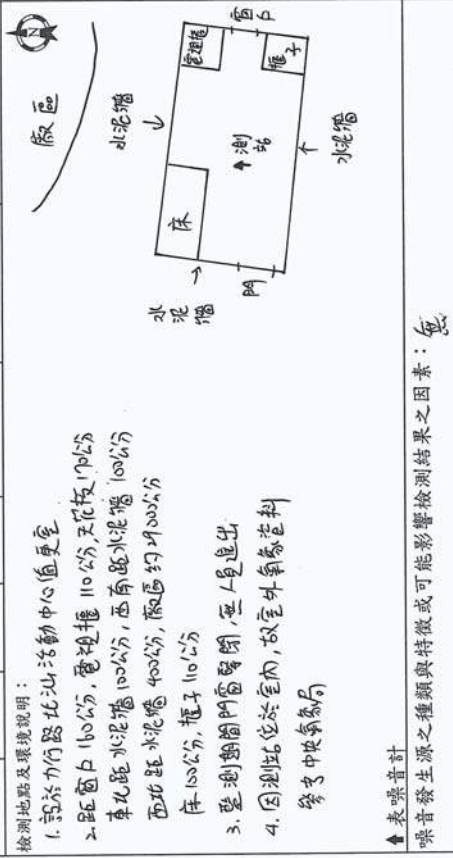 檢測地點及環境說明：
1. 設於力行路北汕活動中心值更室
2. 距窗戶 160公分, 電視櫃 110公分, 天花板 170公分
東北距水泥牆 100公分, 西南距水泥牆 100公分
西北距水泥牆 400公分, 廠區約 29000公分
床 100公分, 櫃子 110公分
3. 監測期間門窗緊閉, 無人員進出
4. 因測站位於室內, 故室外氣象資料
參考中央氣象局
N
廠區
水泥牆
水泥牆
床
電視櫃
窗戶
櫃子
測站
門
水泥牆
表噪音計
噪音發生源之種類與特徵或可能影響檢測結果之因素：無